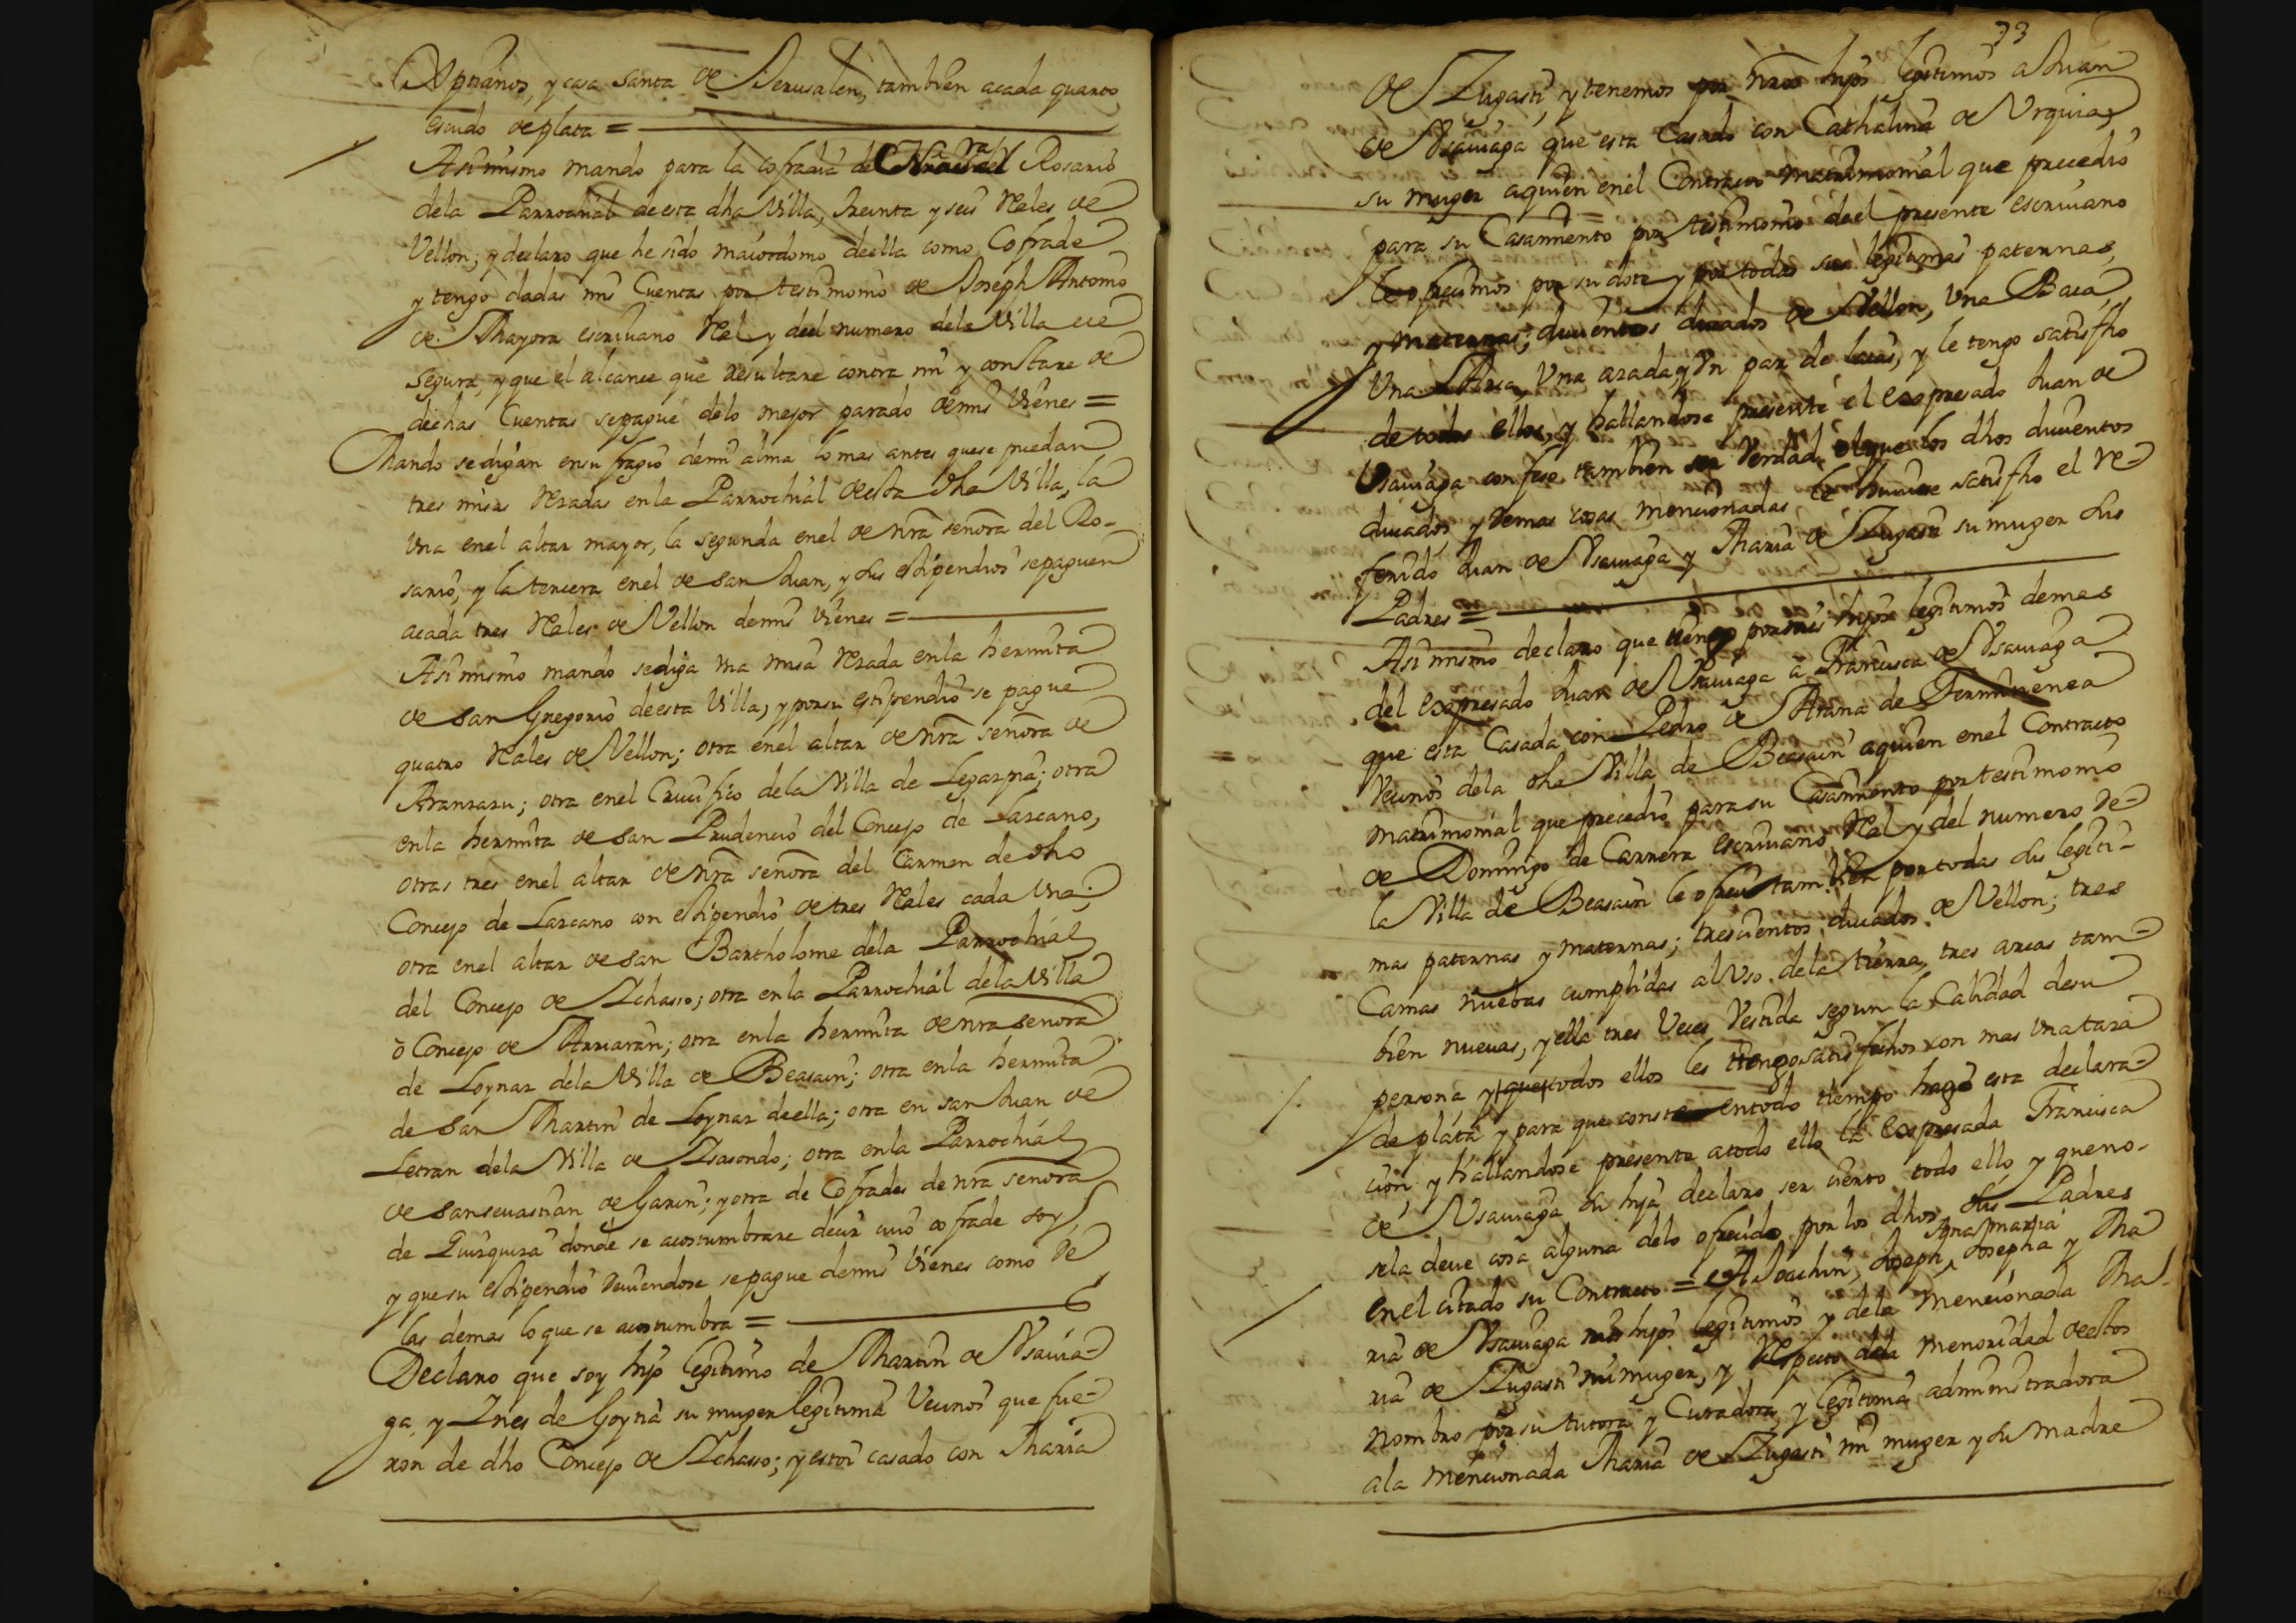 Xptianos, y casa santa de Jerusalen, tambien acada quarto
escudo de plata =
Asimismo mando para la cofradia de Nra Sra del Rosario
dela Parrochial de esta dha Villa, treinta y seis Reales de
Vellon; y declaro que he sido maiordomo de ella como Cofrade
y tengo dadas mis Cuentas por testimonio de Joseph Antonio
de Mayora escrivano Real y del numero dela Villa de
Segura, y que el alcance que resultare contra mi y constare de
dichas Cuentas sepague delo mejor parado de mis Vienes =
Mando se digan en sufragio demi alma lo mas antes quese puedan
tres misas Rezadas enla Parrochial de esta dha Villa, la
Una enel altar mayor, la segunda enel de nra señora del Ro-
sario, y la tercera enel de San Juan, y sus estipendios sepaguen
acada tres Reales de Vellon demis Vienes =
Asimismo mando se diga una misa Rezada enla hermita
de San Gregorio de esta Villa, y por su estipendio se pague
quatro Reales de Vellon; otra enel altar de nra señora de
Aranzazu; otra enel Crucifico dela Villa de Legazpia; otra
enla hermita de San Prudencio del Concejo de Lazcano,
otras tres enel altar de nra señora del Carmen de dho
Concejo de Lazcano con estipendio de tres Reales cada Una;
otra enel altar de San Bartholome dela Parrochial
del Concejo de Ychasso; otra enla Parrochial dela Villa
o Concejo de Arriaran; otra enla hermita de nra señora
de Loynaz dela Villa de Beasain; otra enla hermita
de San Martin de Loynaz de ella; otra en San Juan de
Letran dela Villa de Ysasondo; otra enla Parrochial
de San sevastian de Garin; y otra de Cofrades de nra señora
de Quizquiza donde se acostumbrare decir cuio cofrade soy,
y que su estipendio deviendose sepague demis Vienes como de
las demas lo que se acostumbra =
Declaro que soy hijo legitimo de Martin de Usavia-
ga, y Ynes de Goytia su muger legitima Vecinos que fue-
ron de dho Concejo de Ychasso; y estoi casado con Maria
33
de Zugasti, y tenemos por nros hijos legitimos a Juan
de Usaviaga que esta Casado con Cathalina de Urquia
su muger aquien enel Contracto matrimonial que precedio
para su Casamiento por testimonio del presente escrivano
le ofrecimos por su dote y por todas sus legitimas paternas,
y maternas; duientos ducados de Vellon, Una Baca,
Una Arca, Una azada, y Un par de laias, y le tengo satisfho
de todos ellos, y hallandose presente el expresado Juan de
Usaviaga confeso tambien ser Verdad el que los dhos duientos
ducados, y demas cosas mencionadas le huviese satisfho el re-
ferido Juan de Usaviaga y Maria de Zugasti su muger sus
Padres =
Asimismo declaro que tengo por mis hijos legitimos demas
del expresado Juan de Usaviaga a Francisca de Usaviaga
que esta Casada con Pedro de Arana de Torminenea
Vecinos dela dha Villa de Beasain aquien enel Contracto
matrimonial que precedio para su Casamiento por testimonio
de Domingo de Carrera escrivano Real y del numero de
la Villa de Beasain le ofreci tambien por todas sus legiti-
mas paternas y maternas; trescientos ducados de Vellon; tres
Camas nuebas cumplidas al Uso dela tierra, tres arcas tam-
bien nuevas, y ella tres Veces Vestida segun la Calidad desu
persona y que todos ellos les tengo satisfechos con mas Una taza
de plata y para que conste entodo tiempo hago esta declara-
cion y hallandose presente atodo ello la expresada Francisca
de Usaviaga su hija declaro ser cierto todo ello y queno-
sela deve cosa alguna delo ofrecido por los dhos sus Padres
enel citado su Contracto = A Joachin, Joseph, Ana maria Josepha y Ma
ria de Usaviaga mis hijos legitimos y dela mencionada Ma-
ria de Zugasti mi muger, y Respecto dela menoridad de estos
nombro por su tutora y Curadora y legitima administradora
ala mencionada Maria de Zugasti mi muger y su madre